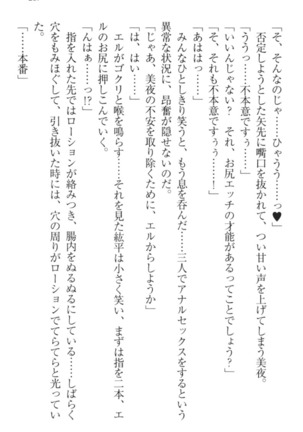 「そ、そんなのじゃ……ひゃうう……っ♥」
否定しようとした矢先に嘴口を抜かれて、つい甘い声を上げてしまう美夜。
「ううっ……不本意ですぅ……」
「いいんじゃない？　それ、お尻エッチの才能があるってことでしょう？」
「そ、それも不本意ですぅぅ……！」
「あははっ……」
みんなひとしきり笑うと、もう息を呑んだ……三人でアナルセックスをするという
異常な状況に、昂奮が隠せないのだ。
「じゃあ、美夜の不安を取り除くために、エルからしようか」
「は、はい……」
エルがゴクリと喉を鳴らす……それを見た紘平は小さく笑い、まずは指を二本、エ
ルのお尻に押しこんでいく。
「んはぁ……っ!?」
指を入れた先ではローションが絡みつき、腸内をぬるぬるにしている……しばらく
穴をもみほぐして、引き抜いた時には、穴の周りがローションでてらてらと光ってい
た。
「……本番」